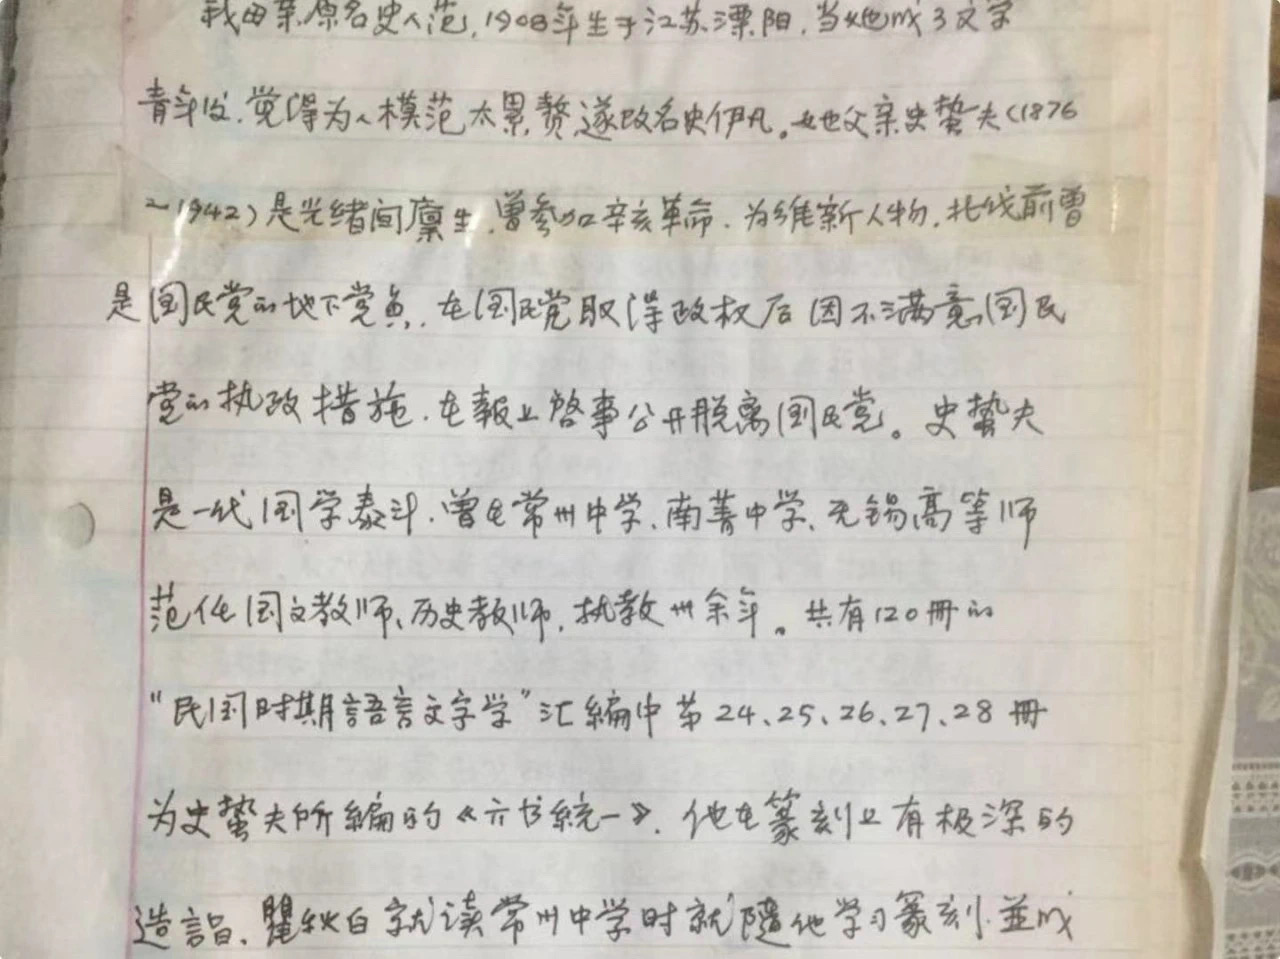 我母亲原名史人范,1908年生于江苏溧阳,当她成了文学
青年后,觉得为人模范太累赘,遂改名史伊凡。她父亲史蛰夫(1876
~1942)是光绪间廪生,曾参加辛亥革命,为维新人物,北伐前曾
是国民党的地下党员,在国民党取得政权后因不满意国民
党的执政措施,在報上啓事公开脱离国民党。史蛰夫
是一代国学泰斗,曾在常州中学、南菁中学、无锡高等师
范任国文教师、历史教师,执教卅余年。共有120册的
“民国时期語言文字学”汇編中第24、25、26、27、28册
为史蛰夫所編的《六书統一》,他在篆刻上有极深的
造詣,瞿秋白就读常州中学时就随他学习篆刻,並成